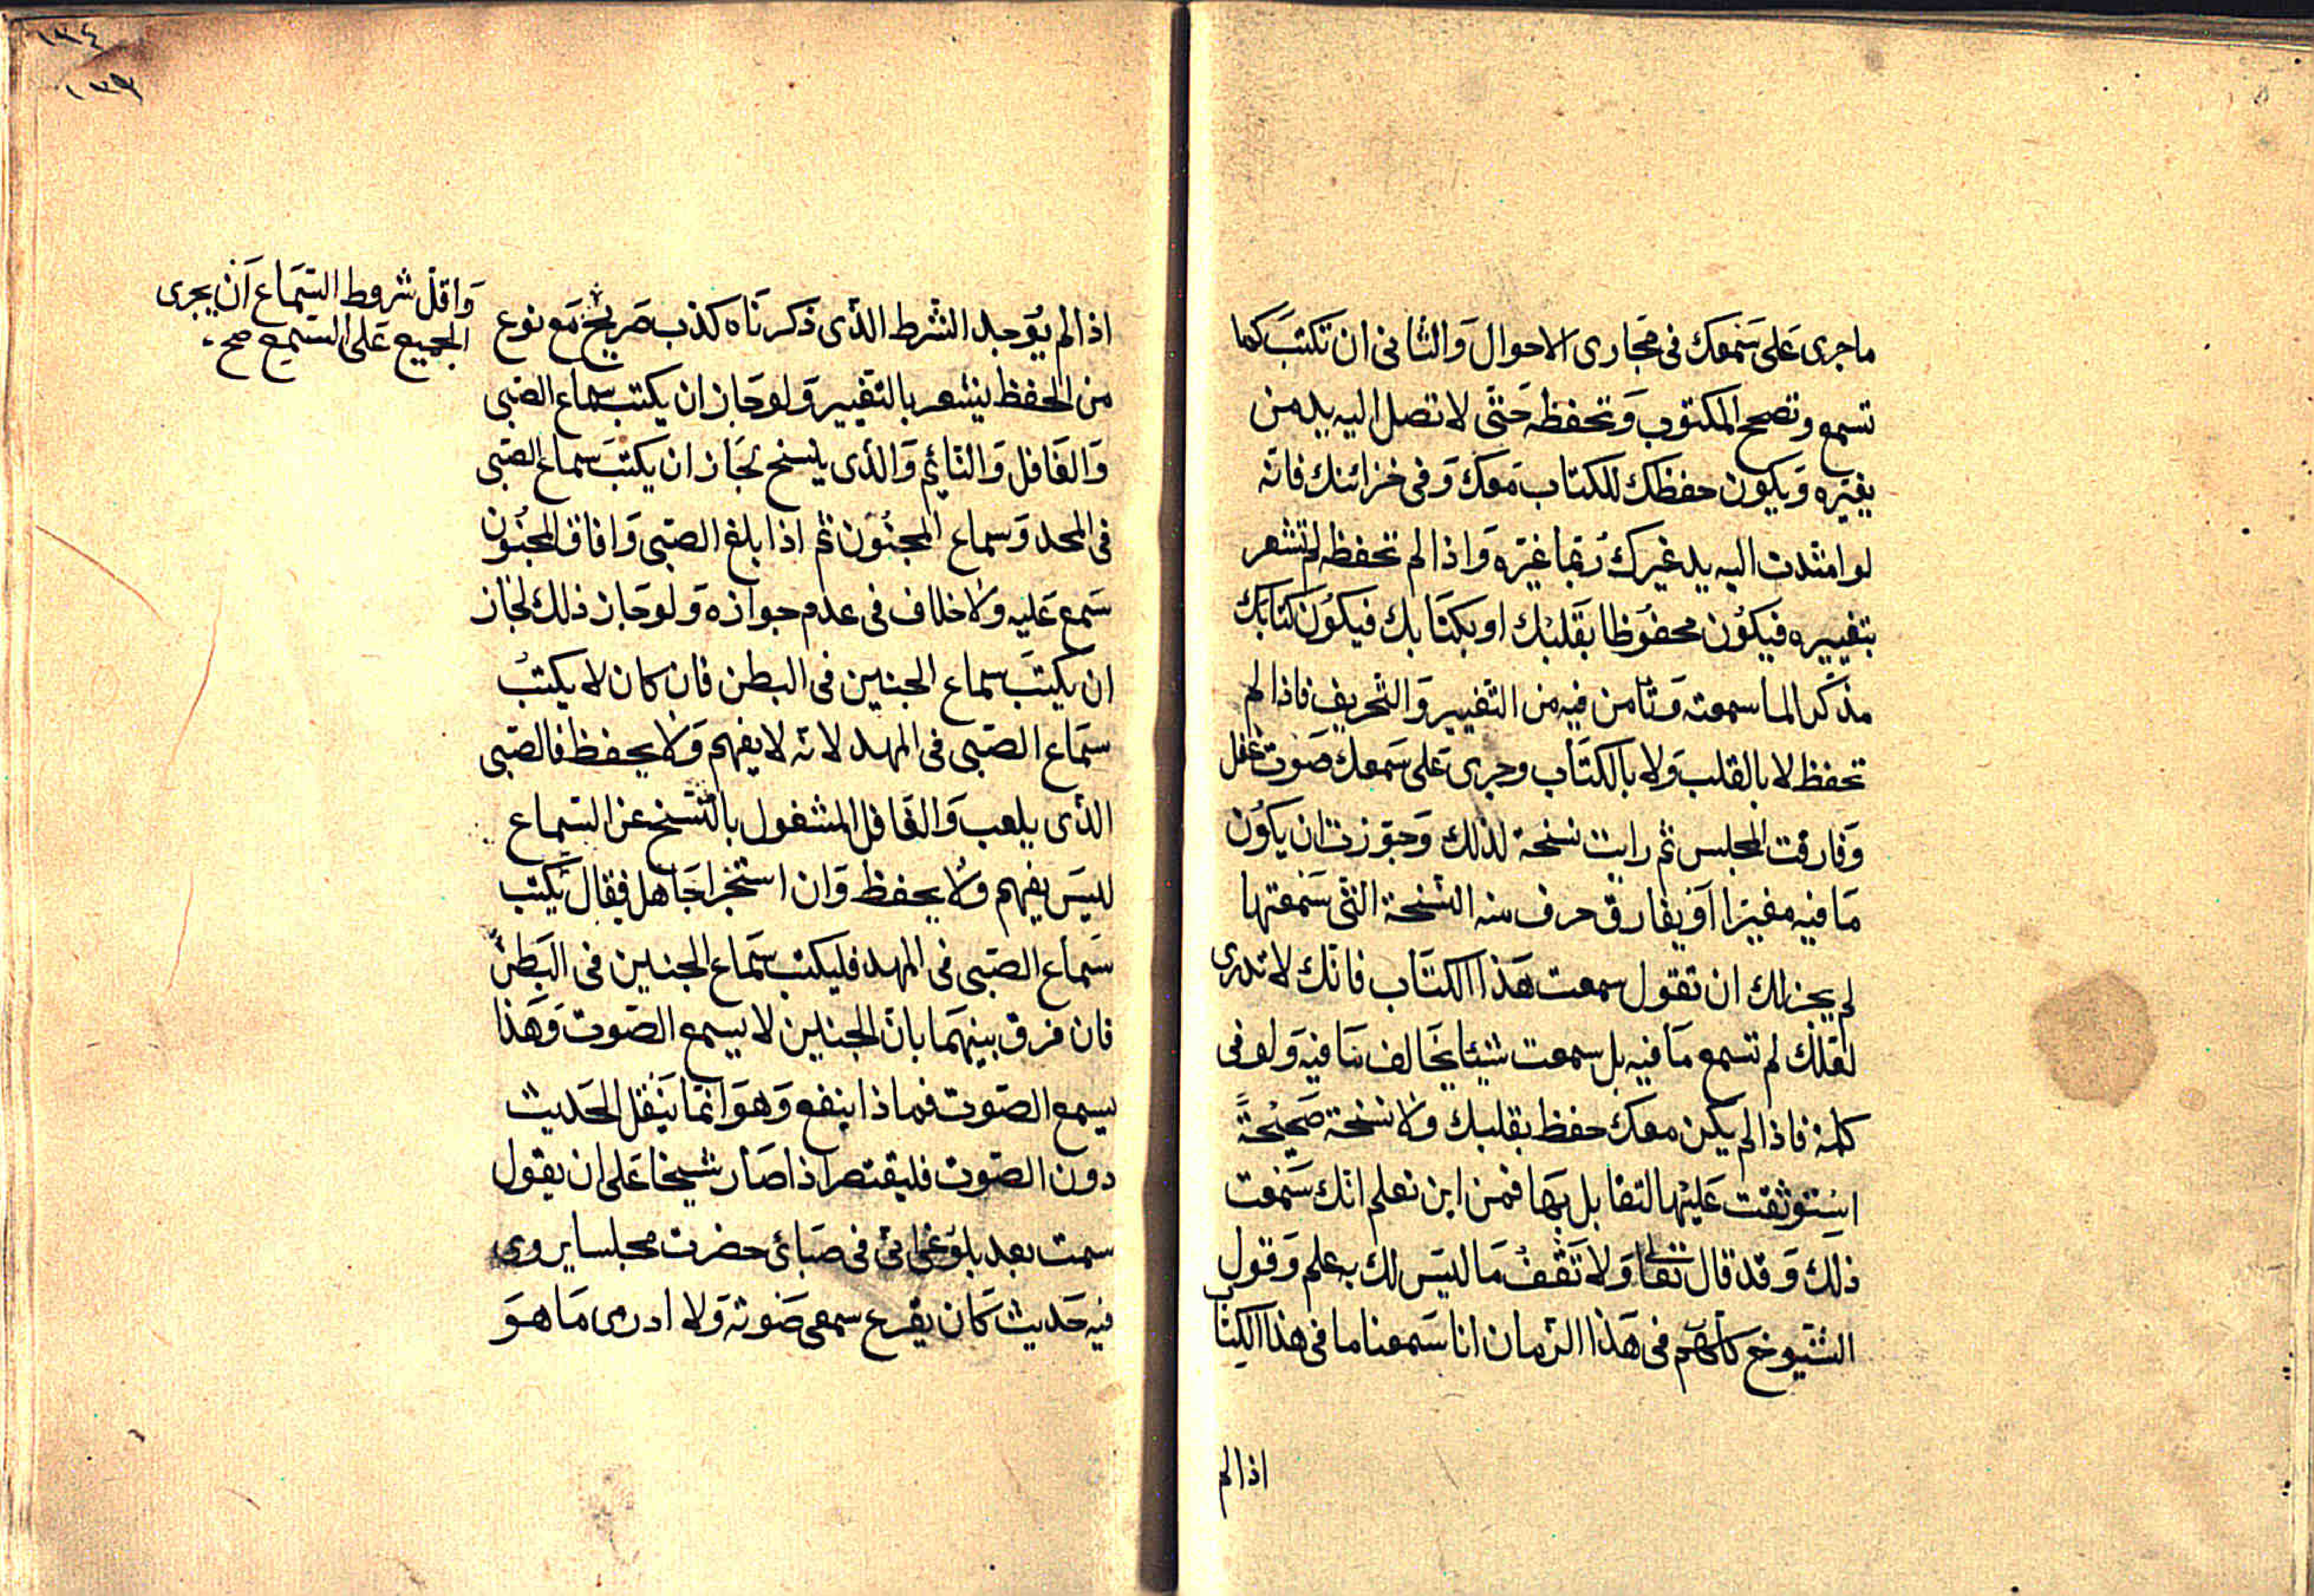 ماجرى عَلى سَمعك فى مجَارى الاحوال وَالثانى ان تكتبَ كما
تسمع وتصحح المكتوب وَتحفظه حَتّى لا تصل اليه يد من
يغيّره وَيكون حفظك للكتاب مَعَك وَفى خزائنك فانّه
لوامتدت اليه يد غيرك رُبّما غيّره وَاذا لم تحفظه لم تشعر
بتغييره فيكوُن محفوُظا بقَلبْك او بكتَابك فيكوُن كتابك
مذكّرا لما سمعته وَتأمن فيه من التغيير وَالتّحريف فاذا لم
تحفظ لا بالقلب وَلا بالكتَاب وجرى عَلى سَمعك صَوت غفل
وَفارقت المجلس ثم رايت نسخة لذلك وَجوّزت ان يكوُن
مَا فيه مغيرّا اَوْ يفارق حرف منه النّسخة التى سَمعتها
لم يجز لك ان تقول سمعت هَذا الكتَاب فانّك لا تدرى
لعَلّك لم تسمع مَا فيه بل سمعت شيئا يخَالف مَا فيه وَلو فى
كلمة فاذا لم يكن معك حفظ بقلبك وَلا نسخة صَحيْحةً
اسْتوثقت عَليْها لتقابل بهَا فمن اين تعلم انّك سَمعت
ذلك وَقد قال تعَالى وَلا تَقْفُ مَا ليَس لك به علم وَقول
الشّيوخ كلّهم فى هَذا الزمان انا سَمعنا ما فى هذا الكتاب
اذا لم
١٣٤
١٣٩
اذا لم يوُجد الشرط الذّى ذكرنَاه كذب صَريْح مَع نوع
وَاقلّ شروط السّمَاع اَنْ يجرى
الجميع عَلى السّمع صح
من الحفظ يشعر بالتغيير وَلوجَاز ان يكتب سماع الصّبى
وَالغَافل وَالنّائم وَالذّى ينسخ لجَاز ان يكتبَ سماع الصّبى
فى المهد وَسماع المجنُوَن ثم اذا بلغ الصّبى وَافاق المجنُون
سَمع عَليه وَلا خلاف فى عدم جوازه وَلوجَاز ذلك لجَاز
ان يكتبَ سماع الجنين فى البطن فان كان لا يكتبُ
سمَاع الصّبى فى المهد لانّه لا يفهم وَلا يحفظ فالصّبى
الذّى يلعب وَالغَافل المشغول بالنّسخ عن السّماع
ليسَ يفهم وَلا يحفظ وَان استجرا جَاهل فقال يكتب
سَماع الصّبى فى المهد فليكتب سَماع الجنين فى البَطن
فان فرق بينهمَا بان الجنين لا يسمع الصّوت وَهَذا
يسمع الصّوت فماذا ينفع وَهوَ انمّا يَنْقل الحَديث
دون الصّوت فليقتصر اذا صَار شيخا عَلى ان يقول
سمعت بعد بلوغى انّى فى صبَائى حضرت مجلسا يروى
فيه حَديث كَان يقرع سمعى صَوته وَلا ادرى مَا هوَ